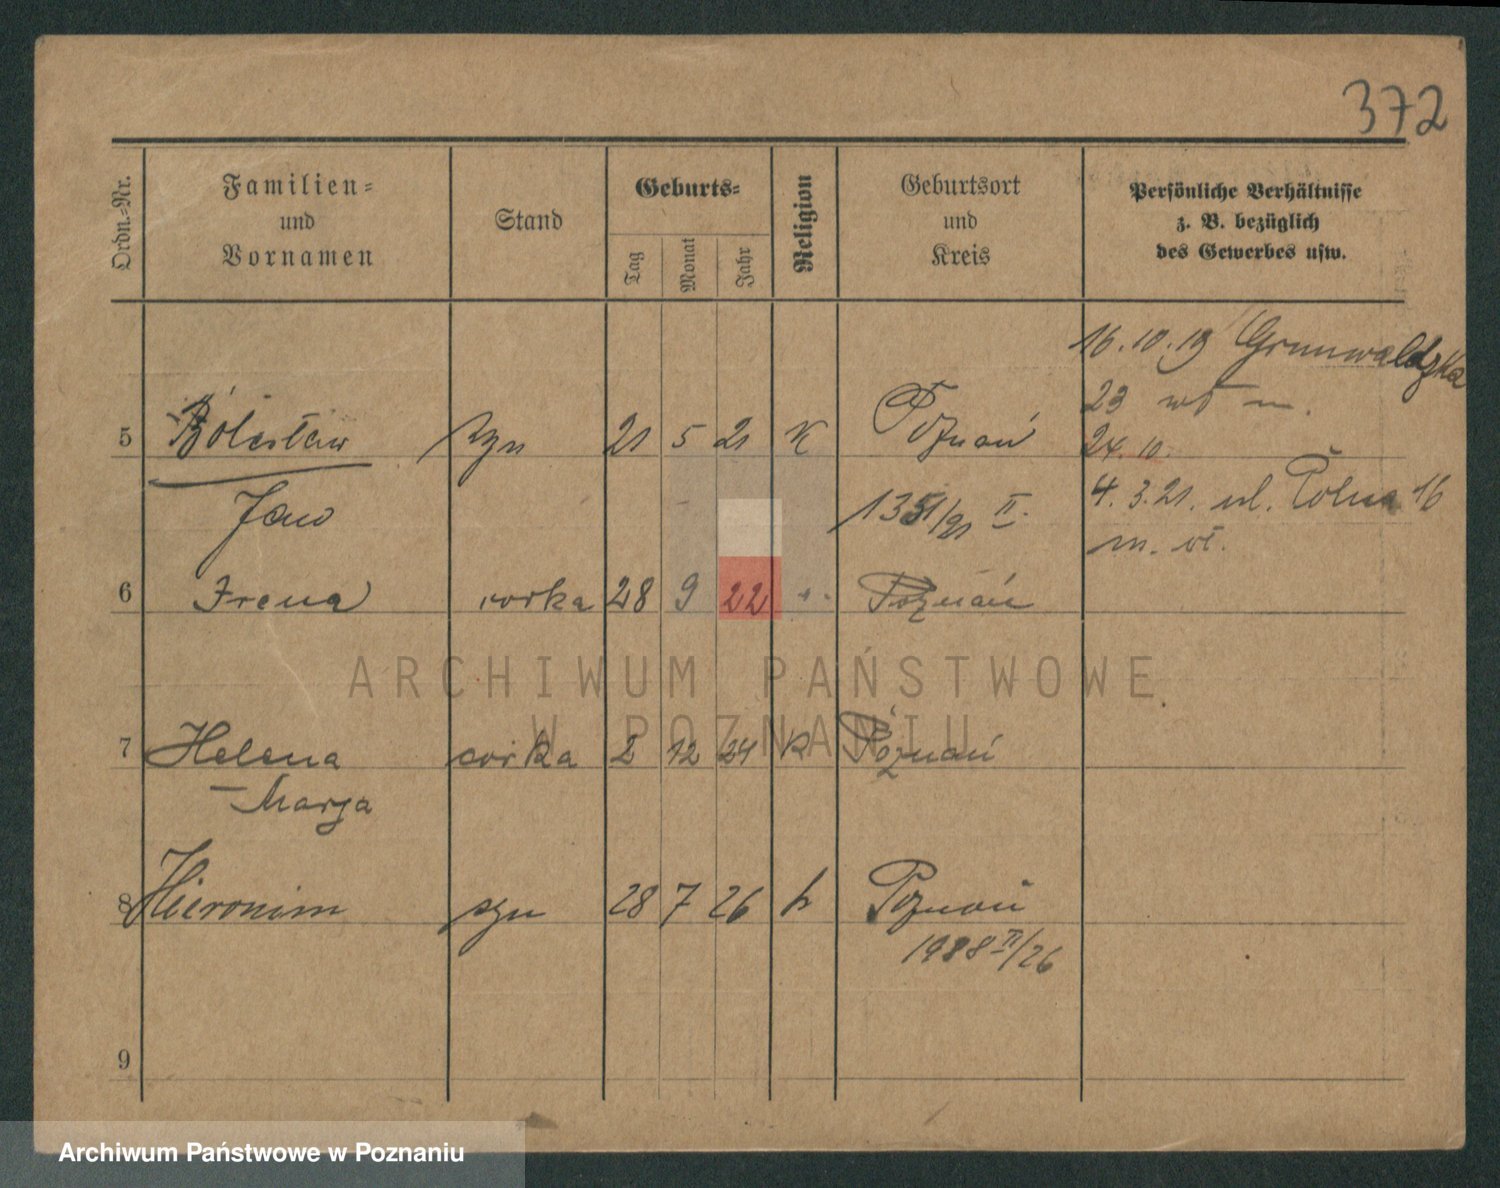 372
Ordn.-Nr.
Familien-
und
Vornamen
Stand
Geburts-
Tag
Monat
Jahr
Religion
Geburtsort
und
Kreis
Persönliche Verhältnisse
z. B. bezüglich
des Gewerbes usw.
16.10.19 Grunwaldzka
23 wł m.
24.10.
5 Bolesław syn 21 5 21 K Poznań
4.3.21. ul. Polna 16
Jan 1351/21 II.
m. wł.
6 Irena corka 28 9 22 Poznań
ARCHIWUM PAŃSTWOWE
W POZNANIU
7 Helena corka 2 12 24 k Poznań
Marja
8 Hieronim syn 28 7 26 k Poznań
1988 II/26
9
Archiwum Państwowe w Poznaniu